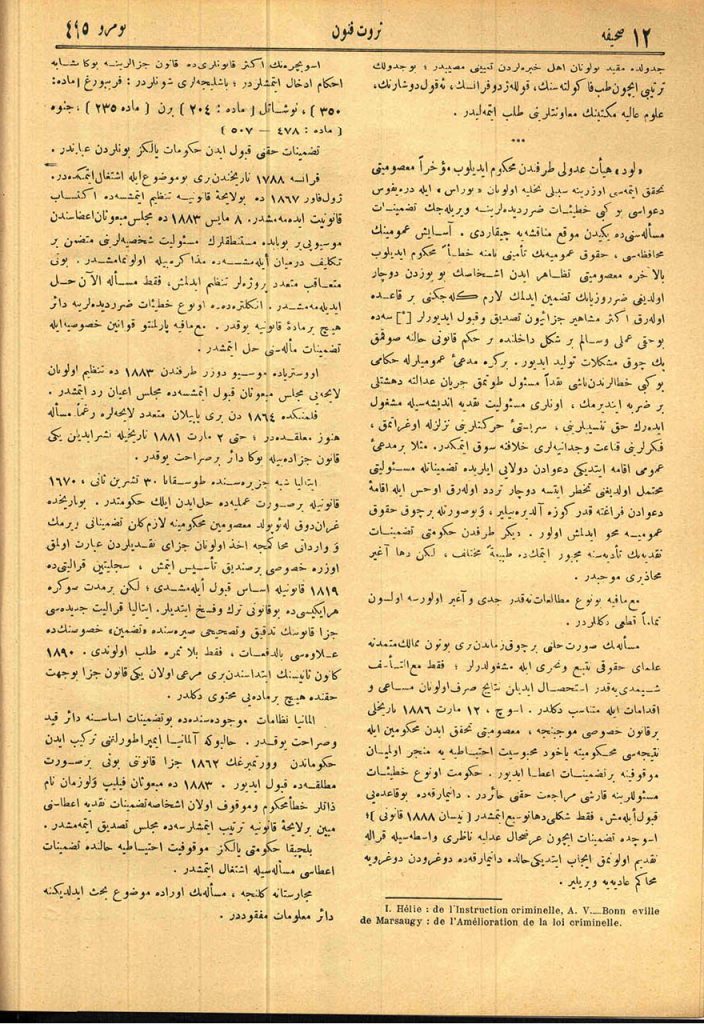 ١٢ صحیفه
ثروت فنون
نومرو ٤٤٥
جدولده مقید بولونان اهل خبره‌لردن تعیینی مصیبدر ؛ بوجدولك
ترتیبی ایچون طب فاكولته‌سنك، قوللەژ دوفرانسك، نه‌قول دوشارتك،
علوم عالیه مكتبنك معاونتلرینی طلب ایتمه‌لیدر .
***
«لود» هیأت عدولی طرفندن محكوم ایدیلوب مؤخراً معصومیتی
تحقق ایتمه‌سی اوزرینه سبیلی تخلیه اولونان «بوراس» ایله دره‌یفوس
دعواسی بو كبی خطیئات ضرردیده‌لرینه ویریله‌جك تضمینات
مسأله‌سنی ده یكیدن موقع مناقشه‌یه چیقاردی . آسایش عمومینك
محافظه‌سی ، حقوق عمومیه‌نك تأمینی نامنه خطأ محكوم ایدیلوب
بالاخره معصومیتی تظاهر ایدن اشخاصك بو یوزدن دوچار
اولدیغی ضرروزیانك تضمین ایدلمك لازم كله‌جكنی بر قاعده
اوله‌رق اكثر مشاهیر جزائیون تصدیق و قبول ایدیورلر [*] سه‌ده
بوحق عملی وسالم بر شكل داخلنده بر حكم قانونی حالنه صوقمق
پك چوق مشكلات تولید ایدیور . بركره مدعیٔ عمومیلرله حكامی
بو كبی خطالرندن ناشی نقداً مسئول طوتمق جریان عدالته دهشتلی
بر ضربه ایندیرمك ، اونلری مسئولیت نقدیه اندیشه‌سیله مشغول
ایده‌رك حق تفسیلرینی ، سربستیٔ حركتلرینی تزلزله اوغراتمق ،
فكرلرینی قناعت وجدانیه‌لری خلافنه سوق ایتمكدر. مثلا بر مدعیٔ
عمومی اقامه ایتدیكی دعوادن دولایی ایلریده تضمیناتله مسئولیتی
محتمل اولدیغنی تخطر ایتسه دوچار تردد اوله‌رق اوحس ایله اقامهٔ
دعوادن فراغته قدر كوزه آلدیره‌بیلیر ، و بوصورتله برچوق حقوق
عمومیه محو ایدلمش اولور . دیكر طرفدن حكومتی تضمینات
نقدیه‌نك تأدیه‌سنه مجبور ایتمك ده طبیعةً مختلف ، لكن دها آغیر
محاذیری موجبدر .
مع مافیه بونوع مطالعات نه‌قدر جدی وآغیر اولورسه اولسون
تماماً قطعی دكلدرلر .
مسأله‌نك صورت حلنی برچوق زماندن بری بوتون ممالك متمدنه
علمای حقوقی تتبع و تحری ایله مشغولدرلر ؛ فقط مع‌التأسف
شیمدی‌یه‌قدر استحصال ایدیلن نتایج صرف اولونان مساعی و
اقدامات ایله متناسب دكلدر . اسوچ ، ١٢ مارت ١٨٨٦ تاریخلی
بر قانون خصوصی موجبنجه ، معصومیتی تحقق ایدن محكومین ایله
نتیجه‌سی محكومیته یاخود محبوسیت احتیاطیه یه منجر اولمیان
موقوفینه بر تضمینات اعطا ایدیور . حكومت اونوع خطیئات
مسئوللرینه قارشی مراجعت حقنی حائزدر . دانیمارقه‌ده بوقاعده‌یی
قبول ایله‌مش، فقط شكلی دها توسیع ایتمشدر ( نیسان ١٨٨٨ قانونی )؛
اسوچده تضمینات ایچون عرضحال عدلیه ناظری واسطه‌سیله قراله
تقدیم اولونمق ایجاب ایتدیكی حالده دانیمارقه‌ده دوغرودن دوغرویه
محاكم عادیه‌یه ویریلیر .
I. Hélie : de l'Instruction criminelle, A. V....Bonn eville
de Marsaugy : de l'Amélioration de la loi criminelle.
اسویچره‌نك اكثر قانتونلری ده قانون جزالرینه بوكا مشابه
احكام ادخال ایتمشلردر ؛ باشلیجه‌لری شونلردر : فریبورغ [ماده :
٣٥٠ ) ، نوشاتل [ ماده : ٢٠٤ ) برن ( ماده ٢٣٥ ) ، جنوه
( ماده : ٤٧٨ — ٥٠٧ )
تضمینات حقنی قبول ایدن حكومات یالكز بونلردن عبارتدر .
فرانسه ١٧٨٨ تاریخندن بری بو موضوع ایله اشتغال ایتمكده‌در.
ژول فاور ١٨٦٧ ده بو لایحهٔ قانونیه تنظیم ایتمشسه‌ده اكتساب
قانونیت ایده‌مه‌مشدر . ٨ مایس ١٨٨٣ ده مجلس مبعوثان اعضاسندن
موسیو پی بر بوبابده مستنطقلرك مسئولیت شخصیه‌لرینی متضمن بر
تكلیف درمیان ایله‌مشسه‌ده مذاكره بیله اولونمامشدر . بونی
متعاقب متعدد پروژه‌لر تنظیم ایدلمش، فقط مسأله الآن حل
ایدیله‌مه‌مشدر . انكلتره‌ده‌ده اونوع خطیئات ضرردیده‌لرینه دائر
هیچ بر مادهٔ قانونیه یوقدر . مع‌مافیه پارلمنتو قوانین خصوصیه ایله
تضمینات مأله‌سنی حل ایتمشدر .
اووستریاده موسیو دوزر طرفندن ١٨٨٣ ده تنظیم اولونان
لایحه‌یی مجلس مبعوثان قبول ایتمشسه‌ده مجلس اعیان رد ایتمشدر .
فلمنكده ١٨٦٤ دن بری یاپیلان متعدد لایحه‌لره رغماً مسأله
هنوز معلقده‌در ؛ حتی ٢ مارت ١٨٨١ تاریخیله نشر ایدیلن یكی
قانون جزاده بیله بوكا دائر بر صراحت یوقدر .
ایتالیا شبه جزیره‌سنده طوسقانا ٣٠ تشرین ثانی ، ١٦٧٠
قانونیله بر صورت عملیه‌ده حل ایدن ایلك حكومتدر . بوتاریخده
غران دوق له‌ئوپولد معصومین محكومینه لازم كلن تضمیناتی ویرمك
و وارداتی محاكمجه اخذ اولونان جزای نقدیلردن عبارت اولمق
اوزره خصوصی بر صندیق تأسیس ایتمش ، سجلیتین قرالیتی ده
١٨١٩ قانونیله اساس قبول ایله‌مشدی ؛ لكن بر مدت سوكره
هر ایكیسی ده بو قانونی ترك وفسخ ایتدیلر. ایتالیا قرالیت جدیده‌سی
جزا قانوننك تدقیق و تصحیحی صیره‌سنده «تضمین» خصوصنك ده
علاوه‌سی بالدفعات ، فقط بلا ثمره طلب اولوندی . ١٨٩٠
كانون ثانیسنك ابتداسندن بری مرعی اولان یكی قانون جزا بوجهت
حقنده هیچ بر ماده‌یی محتوی دكلدر .
المانیا نظامات موجوده‌سنده‌ده بو تضمینات اساسنه دائر قید
وصراحت یوقدر . حالبوكه آلمانیا ایمپراطورلغنی تركیب ایدن
حكوماتدن وورتمبرغك ١٨٦٢ جزا قانونی بونی بر صورت
مطلقه‌ده قبول ایدیور . ١٨٨٣ ده مبعوثان فیلیپ ولوزمان نام
ذاتلر خطأ محكوم وموقوف اولان اشخاصه تضمینات نقدیه اعطاسنی
مبین بر لایحهٔ قانونیه ترتیب ایتمشلرسه‌ده مجلس تصدیق ایتمه‌مشدر.
بلچیقا حكومتی یالكز موقوفیت احتیاطیه حالنده تضمینات
اعطاسی مسأله‌سیله اشتغال ایتمشدر .
مجارستانه كلنجه ، مسأله‌نك اوراده موضوع بحث ایدلدیكنه
دائر معلومات مفقوددر .